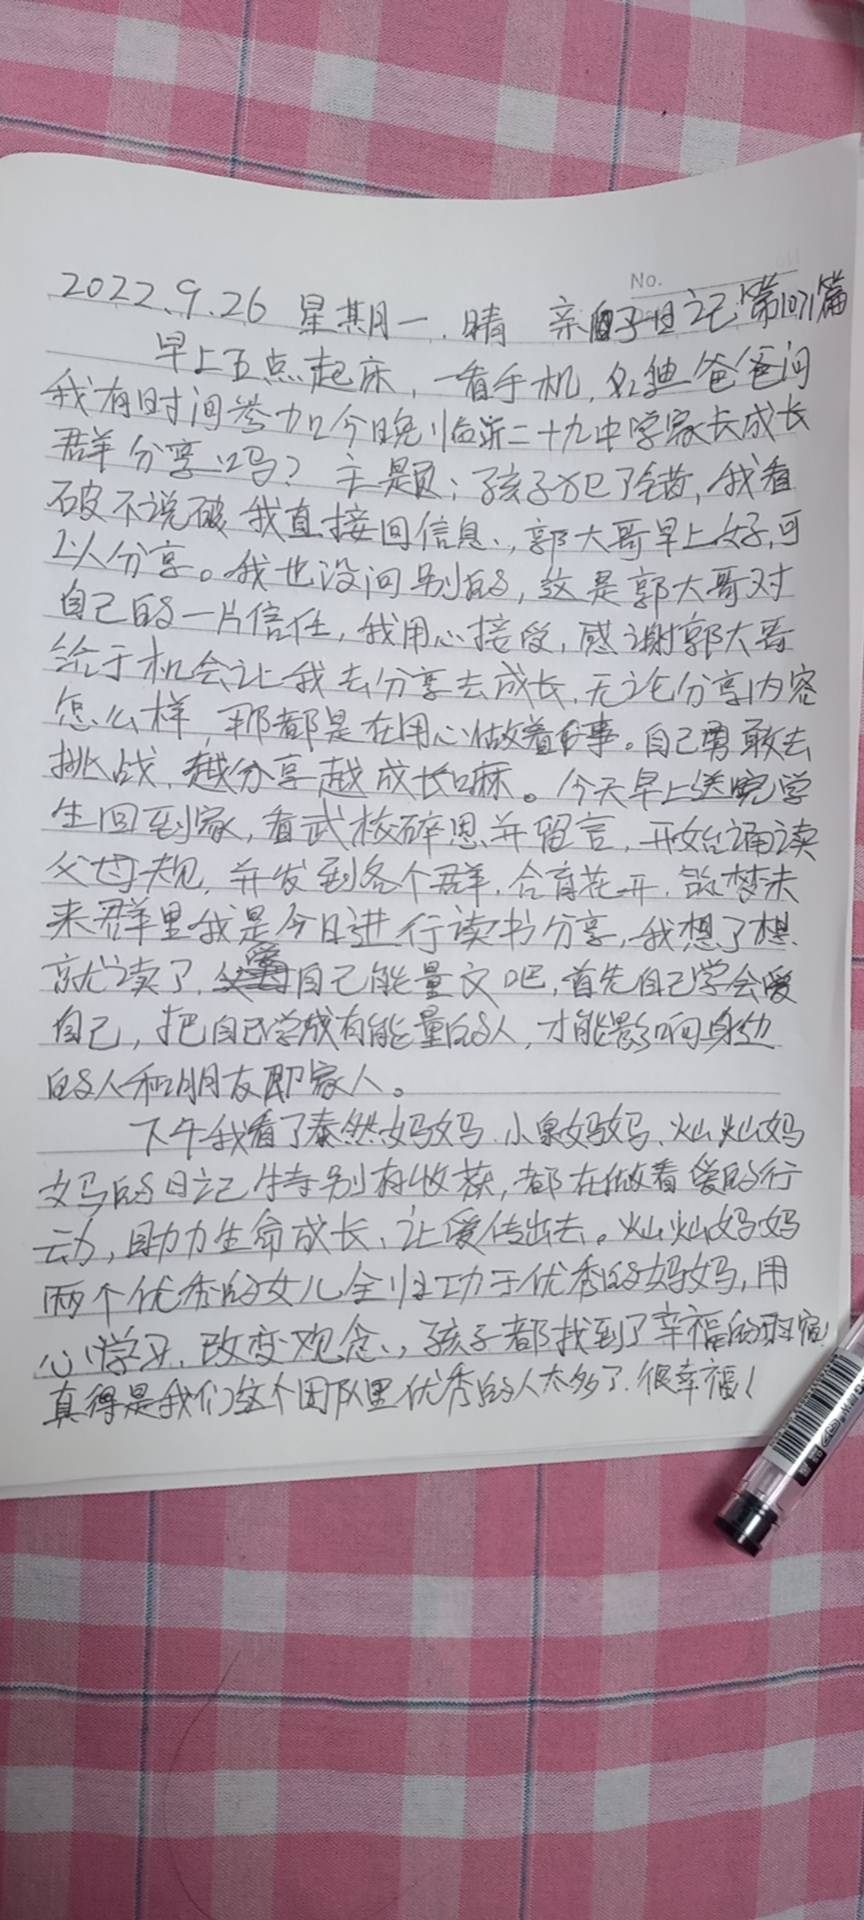 No.
2022.9.26 星期一.晴 亲子日记第1071篇
早上五点起床,一看手机,名迪爸爸问
我有时间参加今晚临沂二十九中学家长成长
群分享吗?主题:孩子犯了错,我看
破不说破 我直接回信息,郭大哥早上好,可
以分享。我也没问别的,这是郭大哥对
自己的一片信任,我用心接受,感谢郭大哥
给于机会让我去分享去成长,无论分享内容
怎么样,那都是在用心做着好事。自己勇敢去
挑战,越分享越成长嘛。今天早上送完学
生回到家,看武校碎思并留言,开始诵读
父母规,并发到各个群,合育花开.筑梦未
来群里我是今日进行读书分享,我想了想
就读了,爱自己能量文吧,首先自己学会爱
自己,把自己学成有能量的人,才能影响身边
的人和朋友即家人。
下午我看了泰然妈妈.小泉妈妈、灿灿妈
妈的日记特别有收获,都在做着爱的行
动,助力生命成长、让爱传出去。灿灿妈妈
两个优秀的女儿全归功于优秀的妈妈,用
心学习、改变观念,孩子都找到了幸福的归宿!
真得是我们这个团队里优秀的人太多了.很幸福!